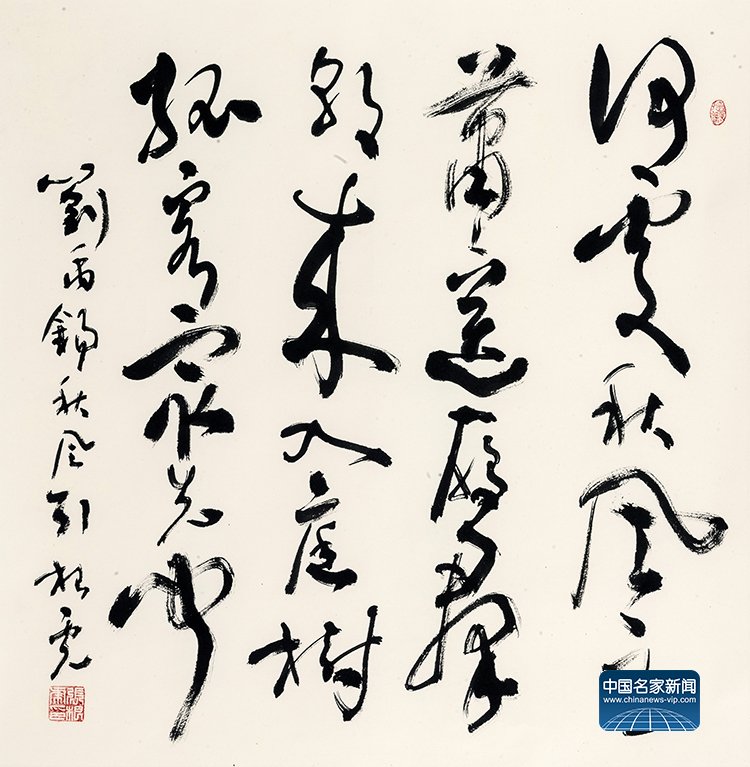 何處秋風至
蕭々送雁羣
朝来入庭樹
孤客最先聞
劉禹錫秋風引
中国名家新闻
www.chinanews-vip.com